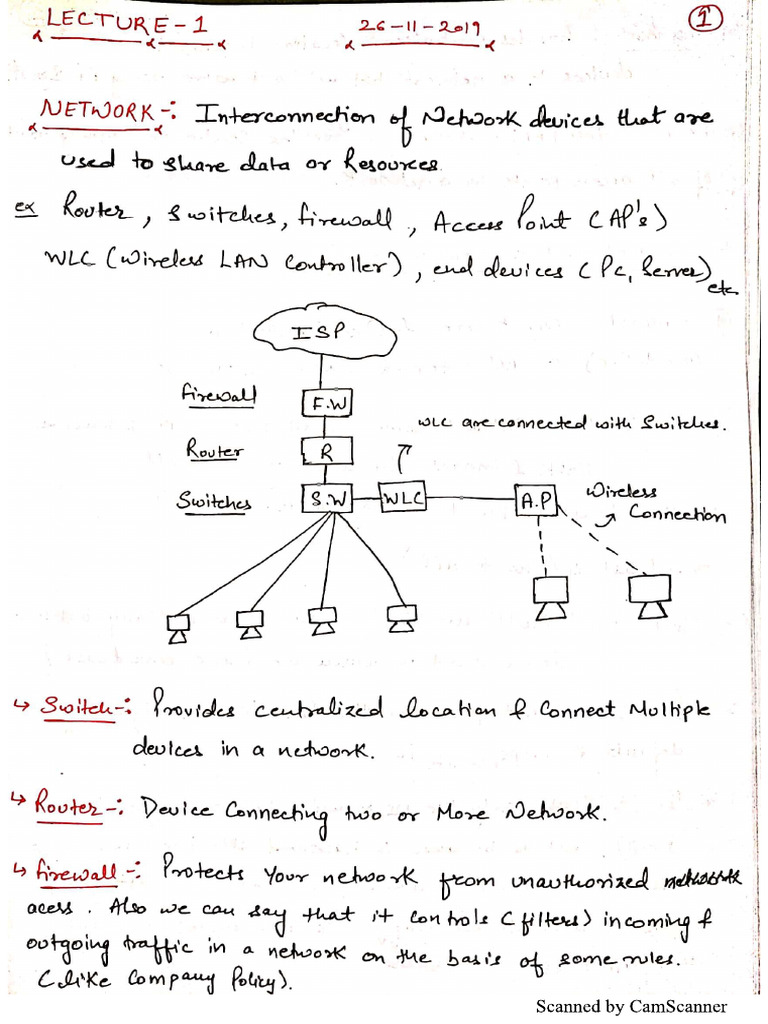 LECTURE-1 26-11-2019 1
NETWORK-: Interconnection of Network devices that are
used to share data or Resources.
ex Router, Switches, firewall, Access Point (AP's)
WLC (Wireless LAN Controller), end devices (PC, Server) etc
ISP
Firewall F.W
WLC are connected with Switches.
Router R
Switches S.W WLC A.P Wireless
Connection
↳ Switch-: Provides centralized location & Connect Multiple
devices in a network.
↳ Router-: Device Connecting two or More Network.
↳ firewall-: Protects Your network from unauthorized network
acess. Also we can say that it controls (filters) incoming &
outgoing traffic in a network on the basis of some rules.
(like Company Policy).
Scanned by CamScanner